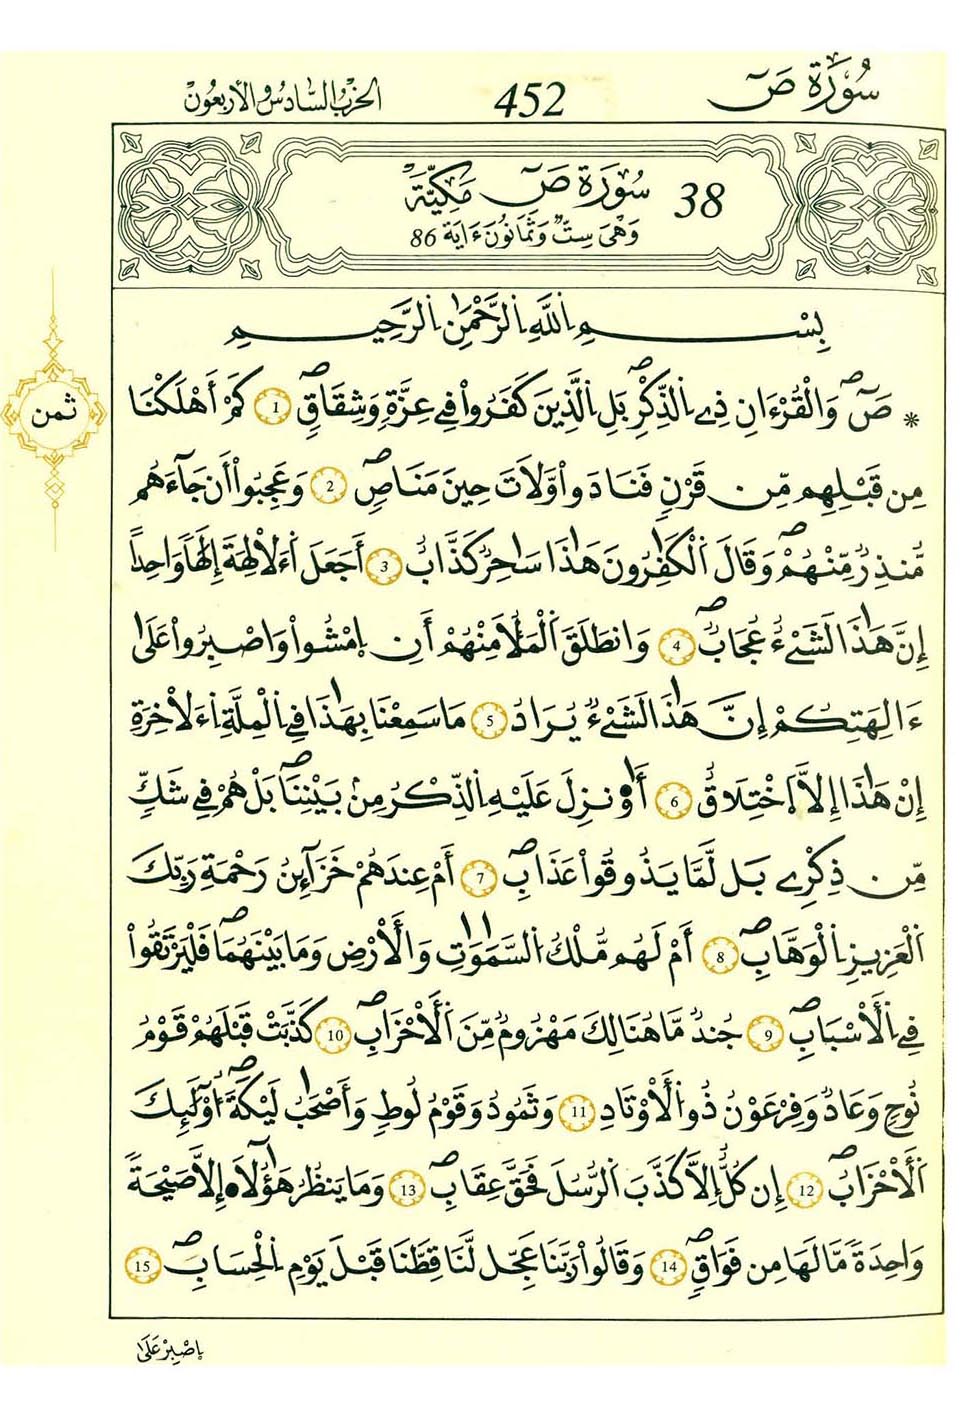 سُورَةُ صَٓ
452
الحزب السادس والأربعون
38 سُورَةُ صَٓ مَكِّيَّةٌ
وَهْيَ سِتٌّ وَثَمَانُونَ ءَايَةً 86
بِسْمِ اِ۬للَّهِ اِ۬لرَّحْمَٰنِ اِ۬لرَّحِيمِ
ثمن
* صَٓ وَالْقُرْءَانِ ذِے اِ۬لذِّكْرِۖ بَلِ اِ۬لَّذِينَ كَفَرُواْ فِے عِزَّةٖ وَشِقَاقٖۖ 1 كَمَ اَهْلَكْنَا
مِن قَبْلِهِم مِّن قَرْنٖ فَنَادَواْ وَّلَاتَ حِينَ مَنَاصٖۖ 2 وَعَجِبُواْ أَن جَآءَهُم
مُّنذِرٞ مِّنْهُمْۖ وَقَالَ اَ۬لْكَٰفِرُونَ هَٰذَا سَٰحِرٞ كَذَّابٌ 3 اَجَعَلَ اَ۬لَالِهَةَ إِلَٰهاٗ وَٰحِداًۖ
إِنَّ هَٰذَا لَشَےْءٌ عُجَابٞۖ 4 وَانطَلَقَ اَ۬لْمَلَأُ مِنْهُمُۥٓ أَنِ اِ۪مْشُواْ وَاصْبِرُواْ عَلَىٰٓ
ءَالِهَتِكُمُۥٓ إِنَّ هَٰذَا لَشَےْءٞ يُرَادُ 5 مَا سَمِعْنَا بِهَٰذَا فِے اِ۬لْمِلَّةِ اِ۬لَاخِرَةِ
إِنْ هَٰذَا إِلَّا اَ۪خْتِلَٰقٌ 6 اَٰ۟نزِلَ عَلَيْهِ اِ۬لذِّكْرُ مِنۢ بَيْنِنَاۖ بَلْ هُمْ فِے شَكّٖ
مِّن ذِكْرِے بَل لَّمَّا يَذُوقُواْ عَذَابِۖ 7 أَمْ عِندَهُمْ خَزَآئِنُ رَحْمَةِ رَبِّكَ
اَ۬لْعَزِيزِ اِ۬لْوَهَّابِۖ 8 أَمْ لَهُم مُّلْكُ اُ۬لسَّمَٰوَٰتِ وَالَارْضِ وَمَا بَيْنَهُمَاۖ فَلْيَرْتَقُواْ
فِے اِ۬لَاسْبَٰبِۖ 9 جُندٞ مَّا هُنَالِكَ مَهْزُومٞ مِّنَ اَ۬لَاحْزَابِۖ 10 كَذَّبَتْ قَبْلَهُمْ قَوْمُ
نُوحٖ وَعَادٞ وَفِرْعَوْنُ ذُو اُ۬لَاوْتَادِ 11 وَثَمُودُ وَقَوْمُ لُوطٖ وَأَصْحَٰبُ لَيْكَةَۖ أُوْلَٰٓئِكَ
اَ۬لَاحْزَابُۖ 12 إِن كُلٌّ اِلَّا كَذَّبَ اَ۬لرُّسُلَ فَحَقَّ عِقَابِۖ 13 وَمَا يَنظُرُ هَٰٓؤُلَآءِ اِلَّا صَيْحَةٗ
وَٰحِدَةٗ مَّا لَهَا مِن فَوَاقٖۖ 14 وَقَالُواْ رَبَّنَا عَجِّل لَّنَا قِطَّنَا قَبْلَ يَوْمِ اِ۬لْحِسَابِۖ 15
اِ۪صْبِرْ عَلَىٰ